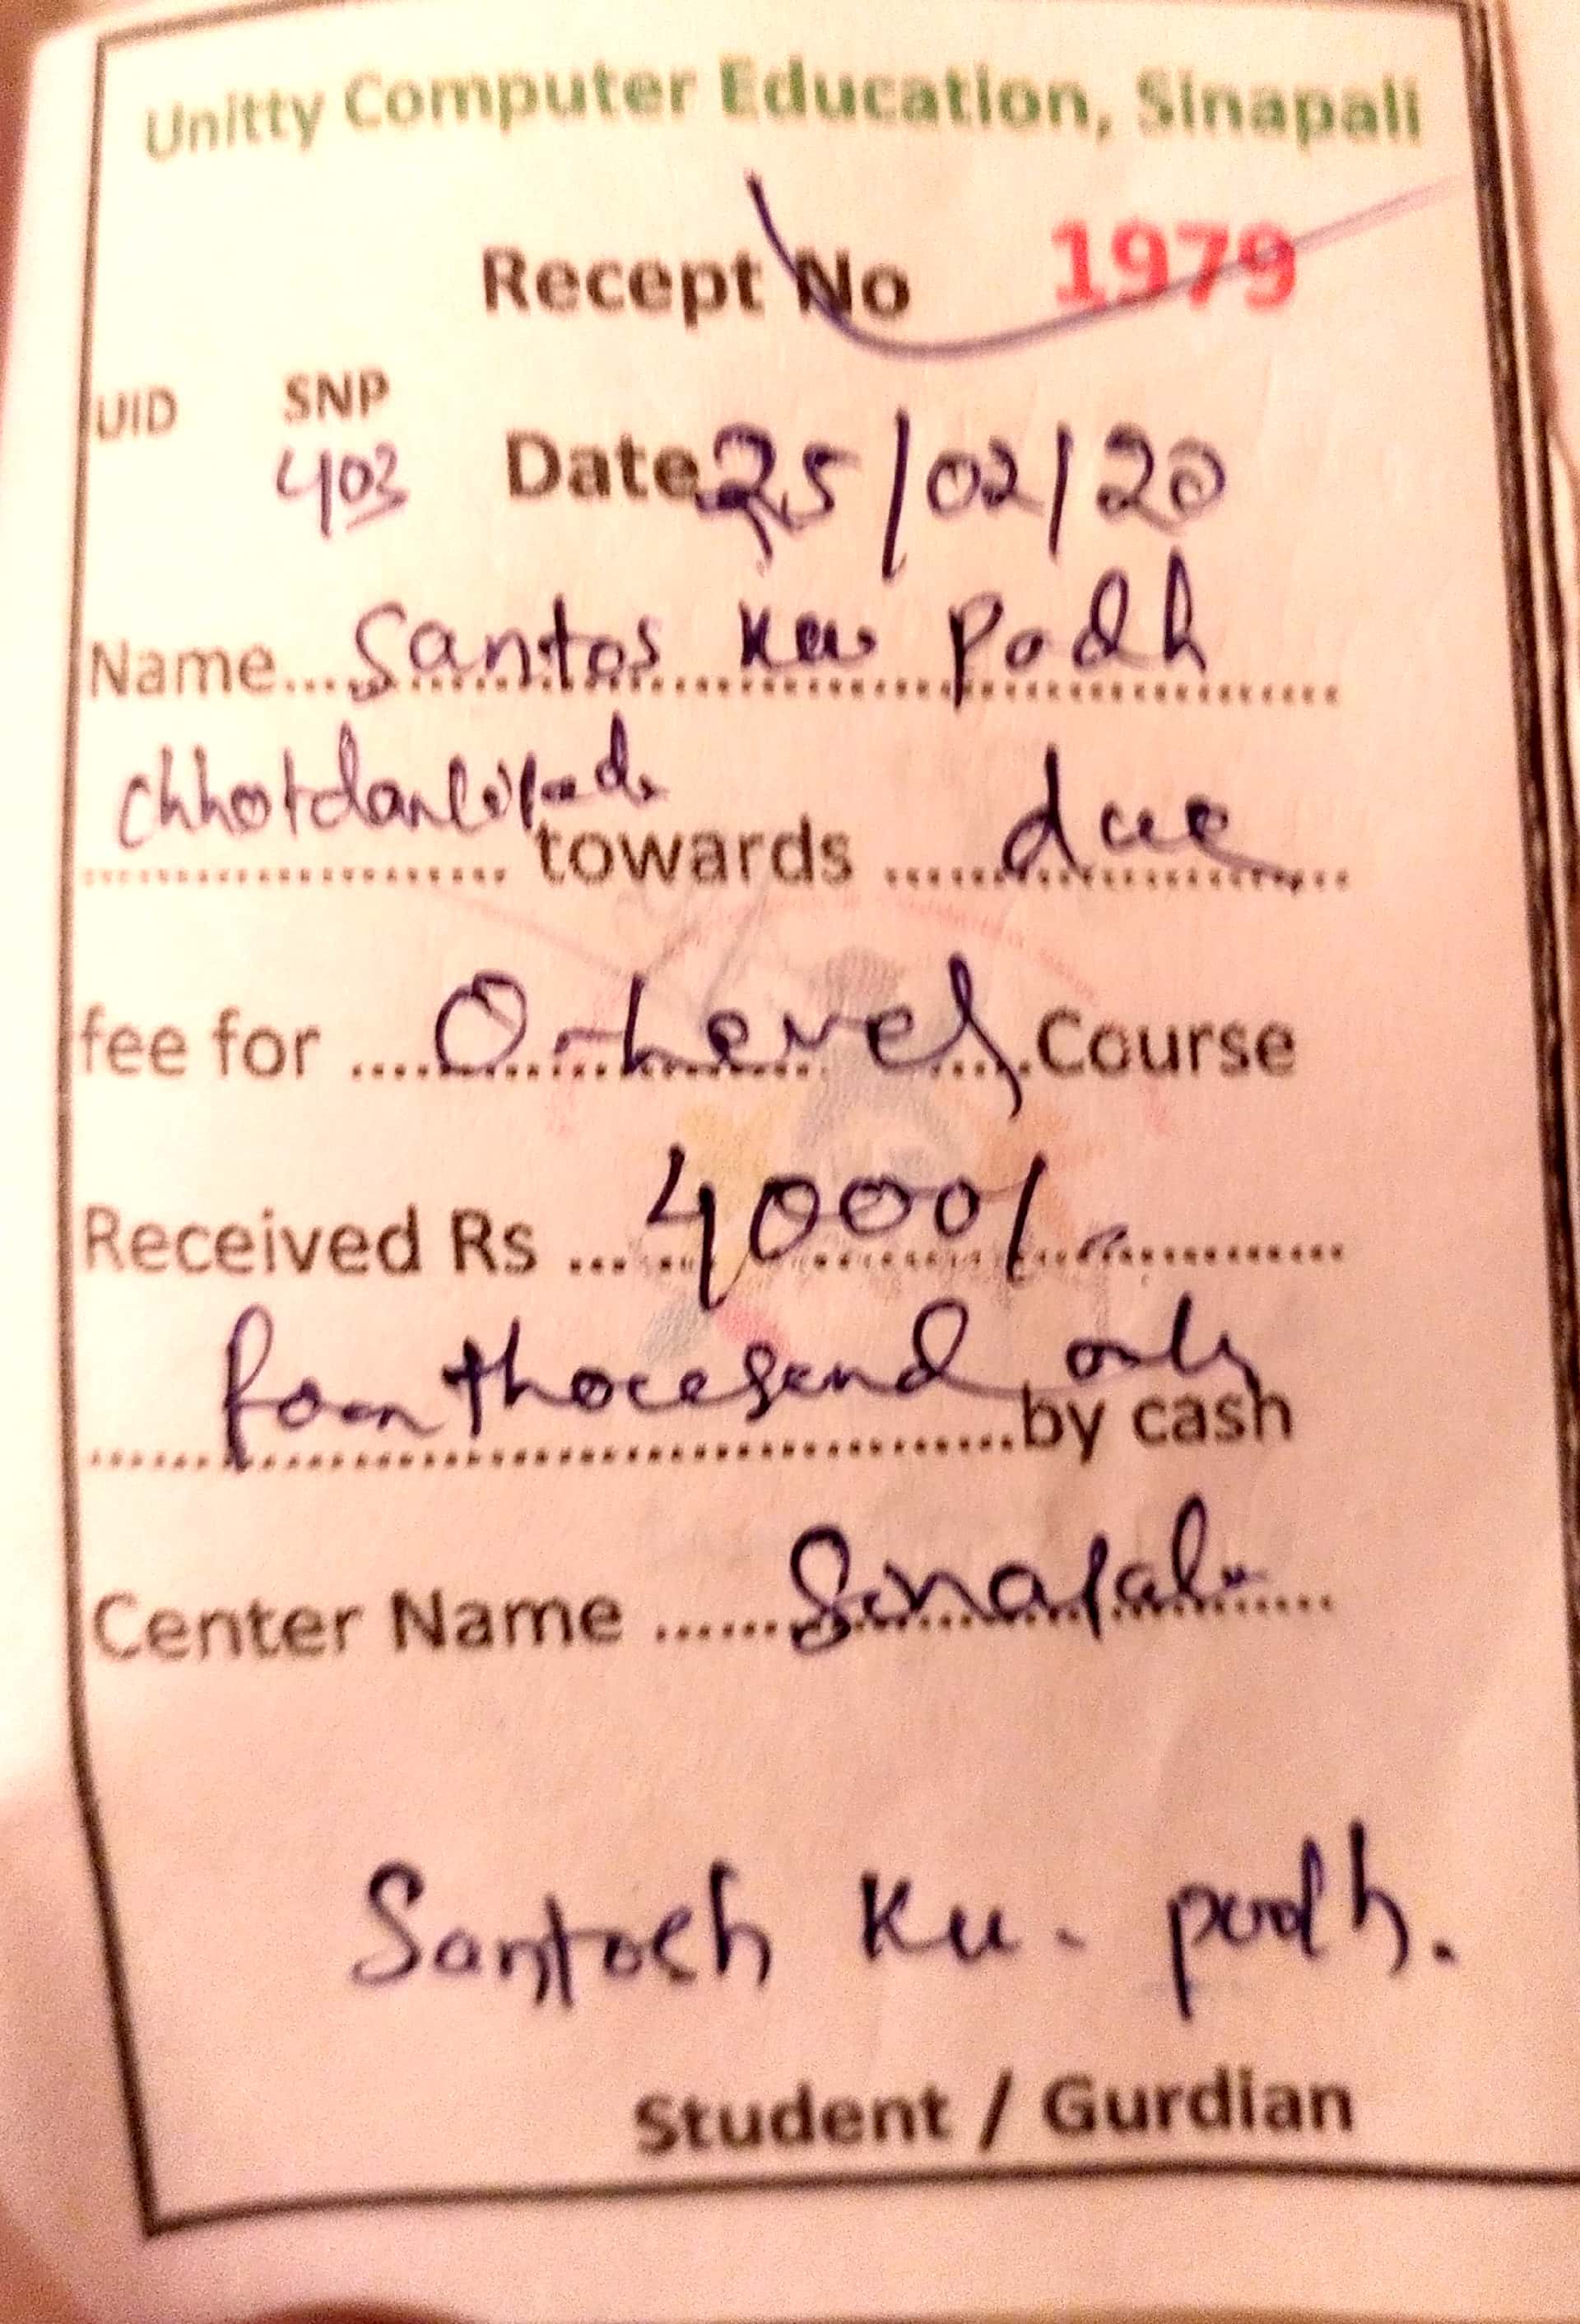 Unitty Computer Education, Sinapali
Recept No 1979
UID SNP
403 Date 25/02/20
Name...Santos Ku Podh
towards ......due
fee for ....O-Level....Course
Received Rs ...4000/-
four thousand only by cash
Center Name ......Sinapali
Santosh Ku. podh.
Student / Gurdian